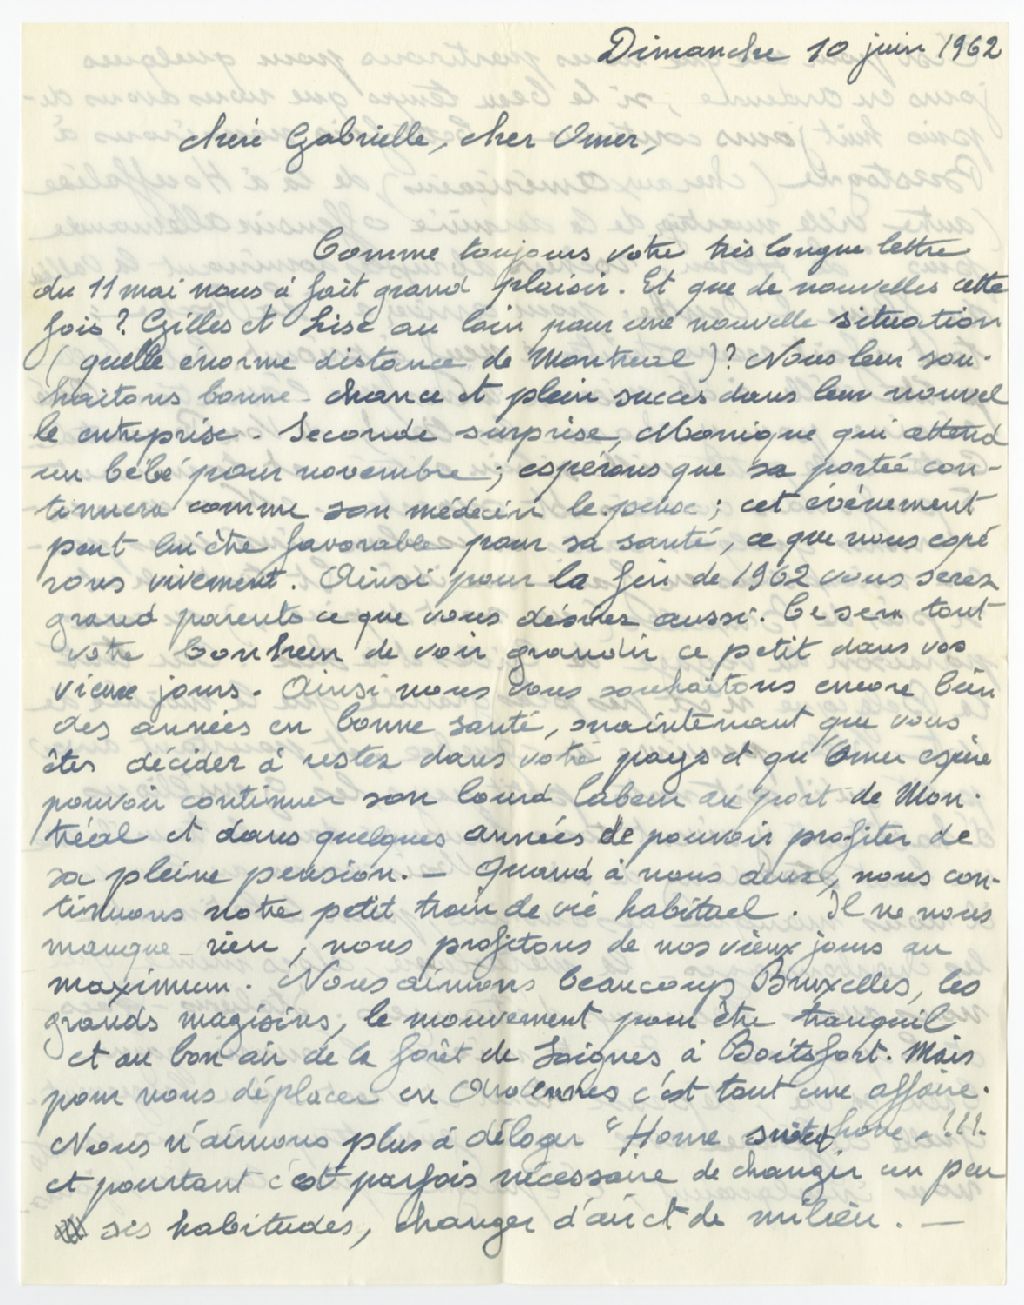 Dimanche 10 juin 1962
chère Gabrielle, cher Omer,
Comme toujours votre très longue lettre
du 11 mai nous à fait grand plaisir. Et que de nouvelles cette
fois? Gilles et Lise au loin pour une nouvelle situation
(quelle énorme distance de Montréal)? Nous leur sou-
haitons bonne chance et plein succès dans leur nouvel
le entreprise. Seconde surprise, Monique qui attend
un bébé pour novembre; espérons que sa portée con-
tinuera comme son médecin le pense; cet évènement
peut lui être favorable pour sa santé, ce que nous espé
rons vivement. Ainsi pour la fin de 1962 vous serez
grand parents ce que vous désirez aussi. Ce sera tout
votre bonheur de voir grandir ce petit dans vos
vieux jours. Ainsi nous vous souhaitons encore bien
des années en bonne santé, maintenant que vous
êtes décider à restez dans votre pays et qu'Omer espère
pouvoir continuer son lourd labeur au port de Mon-
tréal et dans quelques années de pouvoir profiter de
sa pleine pension. — Quand à nous deux, nous con-
tinuons notre petit train de vie habituel. Il ne nous
manque rien, nous profitons de nos vieux jours au
maximum. Nous aimons beaucoup Bruxelles, les
grands magisins, le mouvement pour être tranquil
et au bon air de la forêt de Soignes à Boitsfort. Mais
pour nous déplacer en Ardennes c'est tout une affaire.
Nous n'aimons plus à déloger "Home !!!.
et pourtant c'est parfois nécessaire de changer un peu
ses habitudes, changer d'air et de milieu. —